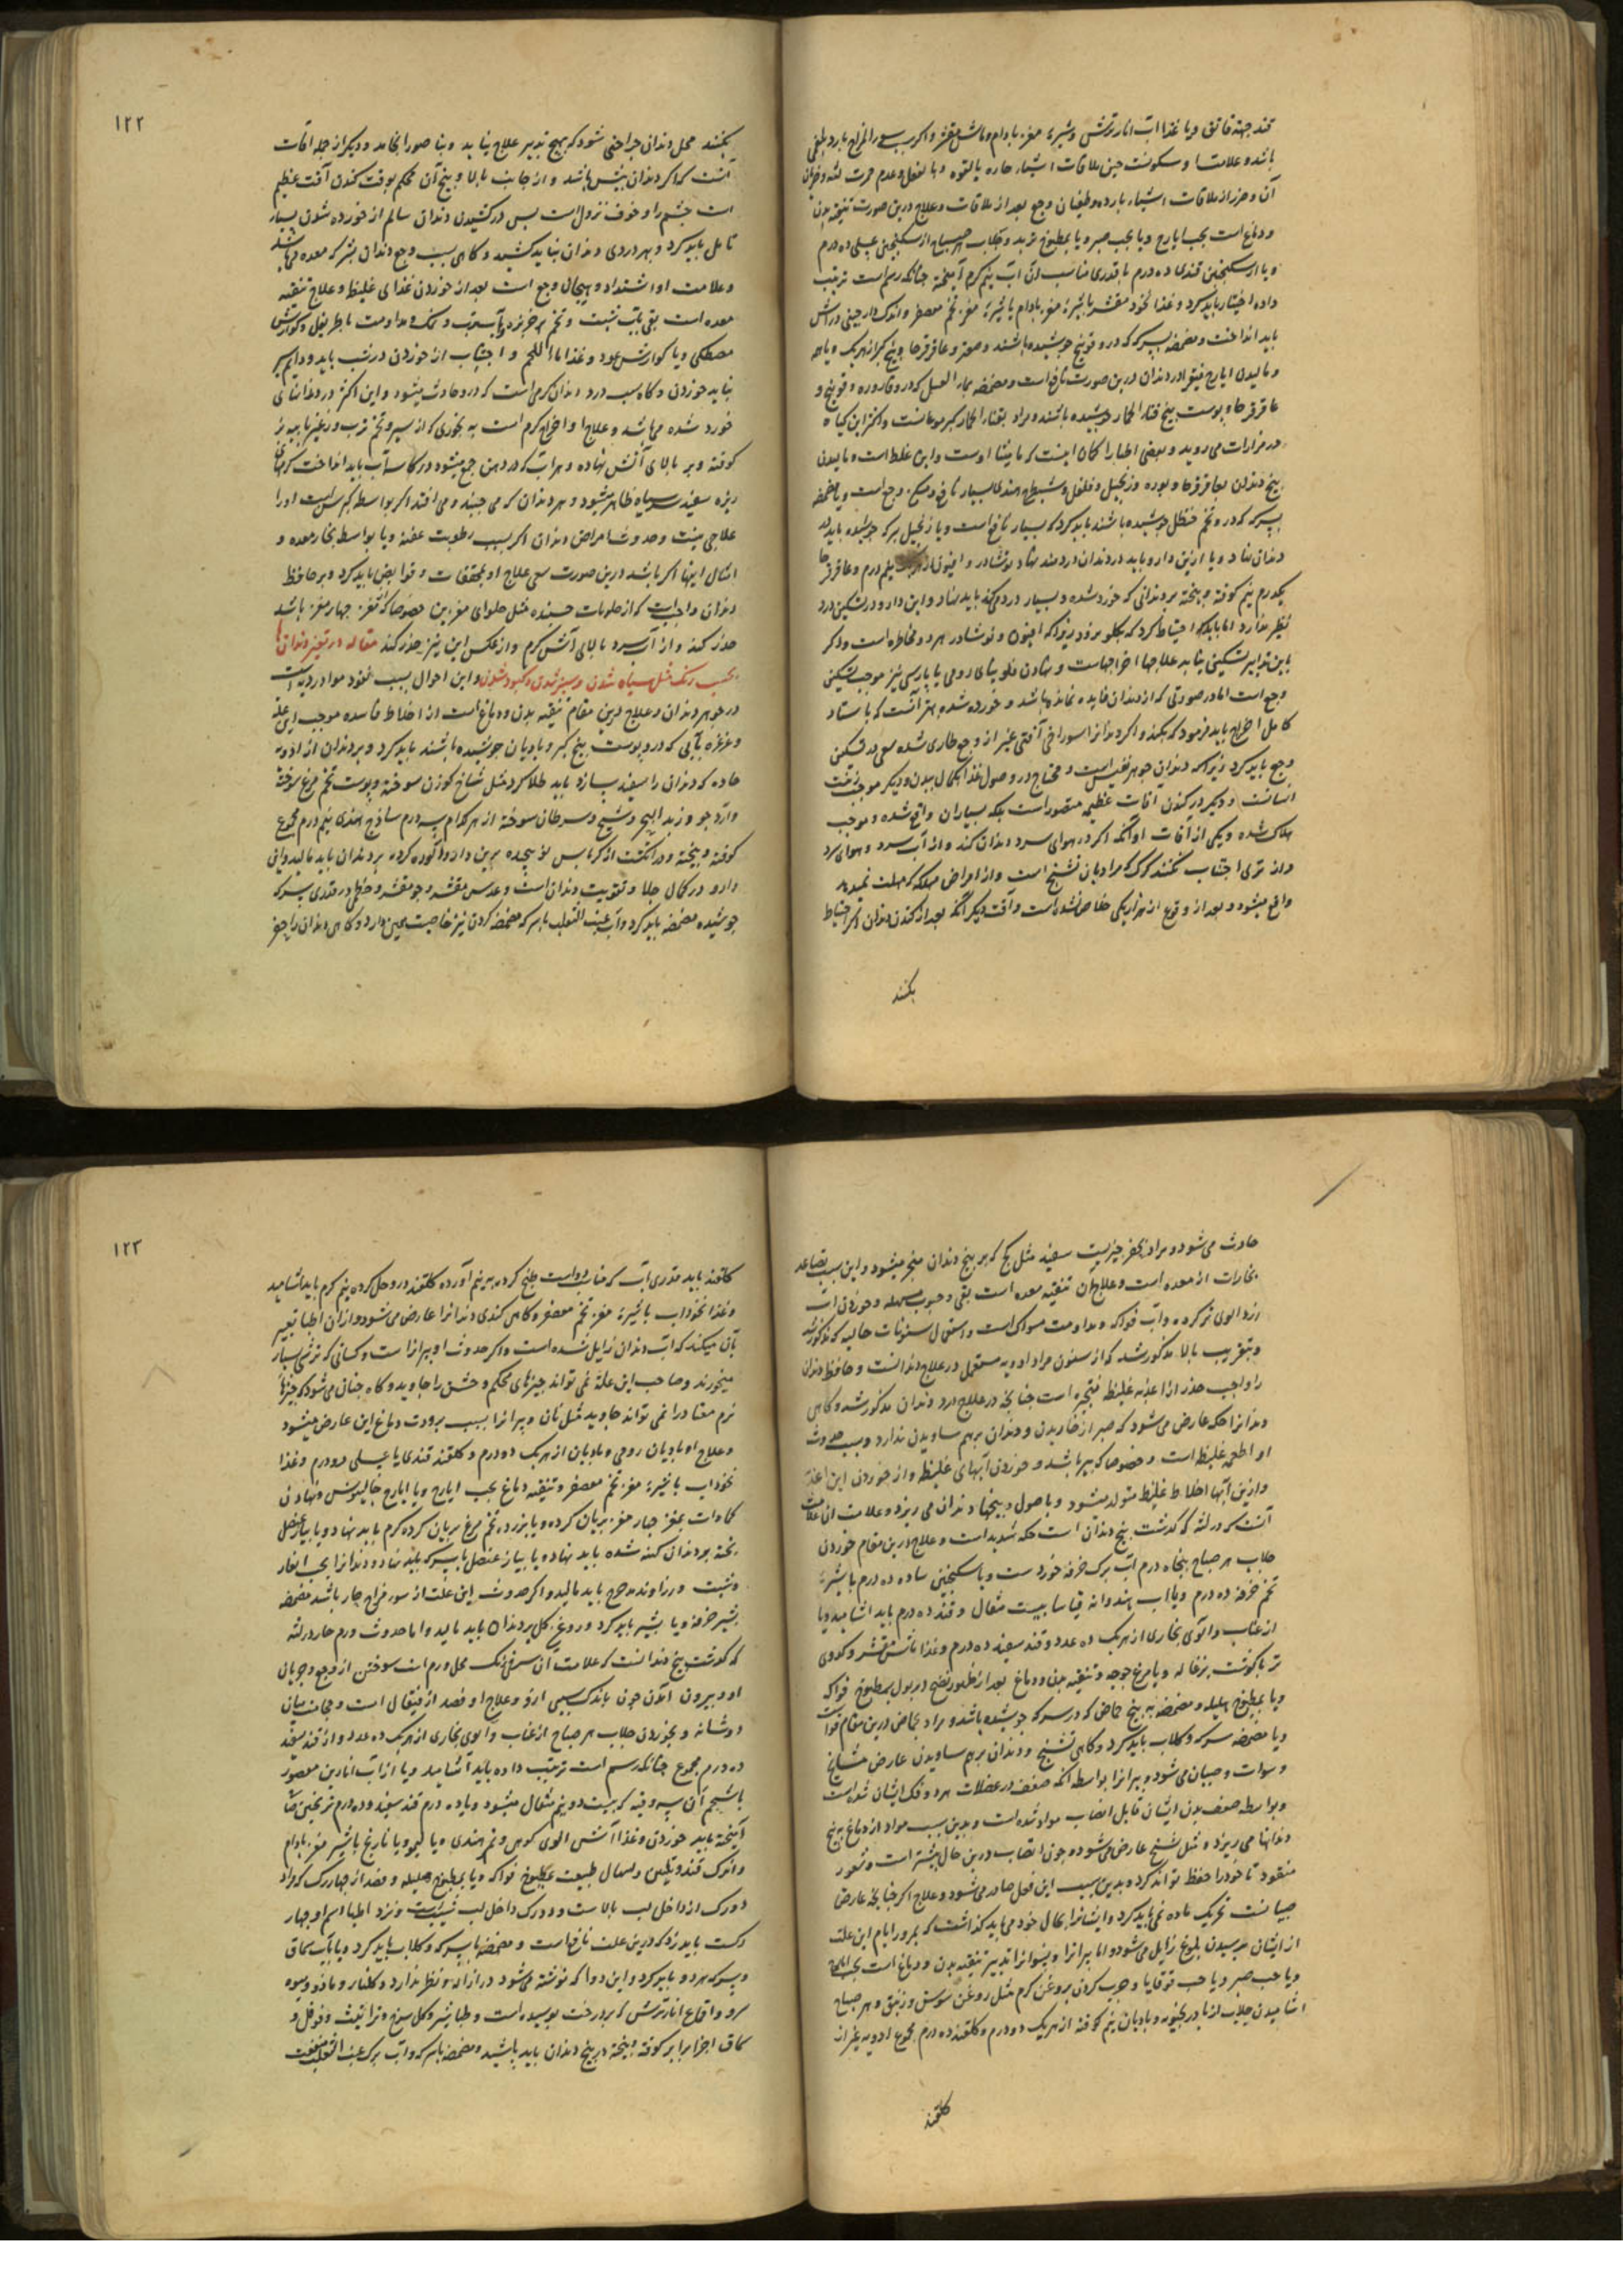 قند جهة فاتق و با غذا اآب انار ترش و شیرهٔ مغز بادام و ماش مقشر و اکر بسبب سوء المزاج بارد بلغمی
باشد و علامت او سکونت حین ملاقات اشیاء حاره بالقوه و بالفعل و عدم حمرت لثه و ضربان
آن و ضرر از ملاقات اشیاء بارده و طغیان وجع بعد از ملاقات و علاج درین صورت تنقیهٔ بدن
و دماغ است بحب ایارج و یا بحب صبر و یا بمطبوخ تربد و جلاب هر صباح از سکنجبین عسلی ده درم
و یا از سکنجبین قندی ده درم با قدری مناسب از آب نیم کرم آمیخته چنانکه رسم است ترتیب
داده اختیار باید کرد و غذا نخود مقشر با شیرهٔ مغز بادام یا شیرهٔ مغز تخم معصفر و اندک دارچینی در آتش
باید انداخت و مضمضه بسرکه که درو فوتنج جوشیده باشند و صعتر و عاقرقرحا و بیخ کبر از هر یک و یا همه
و مالیدن ایارج فیقرا در دندان درین صورت نافع است و مضمضه بماء العسل که درو قاروره و فوتنج و
عاقرقرحا و پوست بیخ قثاء الحمار جوشیده باشند و مراد بقثاء الحمار و اکثر این کیاه
در مزارات می روید و بعضی اطبا را کمان اینست که مامیثا اوست و این غلط است و مالیدن
بیخ دندان بعاقرقرحا و بوره و زنجبیل و فلفل و شیطرج هندی بسیار نافع و مسکن وجع است و یا مضمضه
بسرکه که درو تخم حنظل جوشیده باشند باید کرد که بسیار نافع است و یا زنجبیل بسرکه جوشیده باید بر
دندان نهاد و یا ازین دارو باید در دندان دردمند نهاد نوشادر و افیون از هر یک نیم درم و عاقرقرحا
یکدرم نیم کوفته و بیخته بر دندانی که خورده شده و بسیار درد می کند باید نهاد و این دارو در تسکین درد
نظیر ندارد اما باید که احتیاط کرد که بکلو نرود زیرا که افیون و نوشادر هر دو مخاطره است و اکر
باین تدابیر تسکین نیابد علاجها اخراجهاست و نهادن فلونیای رومی یا پارسی نیز موجب تسکین
وجع است اما در صورتی که از دندان فایده نمانده باشد و خورده شده بهتر آنست که باستاد
کامل اخراج باید فرمود که بکند و اکر دندانرا سوراخی آفتی غیر از وجع طاری نشده سعی در تسکین
وجع باید کرد زیرا که دندان جوهر نفیس است و محتاج در وصول غذا بکمال ببدن و دیکر موجب زینت
انسانست و دیکر در کندن آفات عظیمه متصور است بلکه بسیاران واقع شده و موجب
هلاک شده و یکی از آفات او آنکه اکر در هوای سرد دندان کند و از آب سرد و هوای سرد
و از تری اجتناب نکنند کوک که مراد بان تشنج است و از امراض مهلکه که مهلت نمیدهد
واقع میشود و بعد از وقوع از هزار یکی خلاص نشده است و آفت دیکر آنکه بعد از کندن دندان اکر احتیاط
بکنند
۱۲۲
بکنند محل دندان جراحتی شود که بهیچ تدبیر علاج نیابد و بناصور انجامد و دیکر از جمله آفات
آنست که اکر دندان نیش باشد و از جانب بالا و بیخ آن محکم بوقت کندن آفت عظیم
است چشم را و خوف نزول است پس در کشیدن دندان سالم از خورده شدن بسیار
تامل باید کرد و بهر دردی دندان نباید کشید و کاهی سبب وجع دندان بشرکه معده می باشد
و علامت او اشتداد و هیجان وجع است بعد از خوردن غذای غلیظ و علاج تنقیه
معده است بقی بآب شبت و تخم خربزه و آب ترب و نمک و مداومت باطریفل و کوارش
مصطکی و یا کوارش عود و غذا ماء اللحم و اجتناب از خوردن در شب باید و دایم سیر
نباید خوردن و کاه سبب درد دندان کرمی است که درو حادث میشود و این اکثر در دندانهای
خورده شده می باشد و علاج او اخراج کرم است به بخوری که از سیر و تخم ترب و زفت با پیه بز
کوفته و بر بالای آتش نهاده و هر آب که در دهن جمع میشود در کاسه آب باید انداخت که کرمهای
ریزه سفید سر سیاه ظاهر میشود و هر دندان که می جنبد و می افتد اکر بواسطه کبر سن است او را
علاجی نیست و حدوث امراض دندان اکر بسبب رطوبت عفنه و یا بواسطه بخار معده و
امثال اینها اکر باشد درین صورت سعی علاج او بمجففات و قوابض باید کرد و بر حافظ
دندان واجب است که از حلویات چسبنده مثل حلوای مغزین خصوصا که مغز چهارمغز باشد
حذر کند و از آب سرد بالای آش کرم و از عکس این نیز حذر کند مقاله در تغیر دندانها
بحسب رنک مثل سیاه شدن و سبز شدن و کبود شدن و این احوال بسبب نفوذ مواد ردیه است
در جوهر دندان و علاج درین مقام تنقیه بدن و دماغ است از اخلاط فاسده موجب این علة
و غرغره بآبی که درو پوست بیخ کبر و بادیان جوشیده باشند باید کرد و بر دندان از ادویه
حاده که دندان را سفید سازد باید طلا کرد مثل شاخ کوزن سوخته و پوست تخم مرغ سوخته
و آرد جو و زبد البحر و شیح و سرطان سوخته از هر کدام سه درم ساذج هندی نیم درم مجموع
کوفته و بیخته و در انکشت از کرباس نو پیچیده برین دارو آلوده کرده بر دندان باید مالید و این
دارو در کمال جلا و تقویت دندان است و عدس مقشر و جو مقشر و در قدری سرکه
جوشیده مضمضه باید کرد و آب عنب الثعلب با سرکه مضمضه کردن نیز خاصیت همین دارد و کاهی دندان را حفر
حادث می شود و مراد بحفر چیزیست سفید مثل کچ که بر بیخ دندان منحجر میشود و این سبب تصاعد
بخارات از معده است و علاج آن تنقیه معده است بقی و حبوب مسهله و خوردن آب
زردالوی تر کرده و آب فواکه و مداومت مسواک است و استعمال سنونات جالیه که مذکور شد
و بتقریب بالا مذکور شد که از سنون مراد ادویه مستعمل در علاج دندانست و حافظ دندان
را واجب حذر از اغذیه غلیظ متبخره است چنانچه در علاج درد دندان مذکور شد و کاهی
دندانرا حکه عارض می شود که صبر از خاریدن و دندان بر هم ساویدن ندارد و سبب حدوث
او اطعمه غلیظ است و خصوصا که پیر باشد و خوردن آبهای غلیظ و از خوردن این اغذیه
و ازین آبها اخلاط غلیظ متولد میشود و باصول و بیخها دندان می ریزد و علامت آن علامت
آنست که در لثه که کوشت بیخ دندان است حکه شدید است و علاج درین مقام خوردن
جلاب هر صباح پنجاه درم آب برک خرفه خوردست و با سکنجبین ساده ده درم با شیرهٔ
تخم خرفه ده درم و یا آب هندوانه قیاسا بیست مثقال و قند ده درم باید اشامید و یا
از عناب و آلوی بخاری از هر یک ده عدد و قند سفید ده درم و غذا ماش مقشر و کدوی
تر با کوشت بزغاله و یا مرغ جوجه و تنقیه بدن و دماغ بعد از ظهور نضج در بول بمطبوخ فواکه
و یا بمطبوخ هلیله و مضمضه به بیخ حماض که در سرکه جوشیده باشد و مراد بحماض درین مقام
و یا مضمضه سرکه و کلاب باید کرد و کاهی تشنج و دندان بر هم ساویدن عارض مشایخ
و نسوان و صبیان می شود و پیرانرا بواسطه آنکه ضعف در عضلات هر دو فک ایشان شده است
و بواسطه ضعف بدن ایشان قابل انصباب مواد شده است و بدین سبب مواد از دماغ به بیخ
دندانها می ریزد و مثل تشنج عارض می شود و چون انصباب درین حال بیشتر است و شعور
مفقود تا خود را حفظ تواند کرد و بدین سبب این فعل صادر می شود و علاج اکر چنانچه عارض
صبیانست تحریک ماده نمی باید کرد و ایشانرا بحال خود می باید کذاشت که بمرور ایام این علت
از ایشان برسیدن بلوغ زایل می شود و اما پیرانرا و نسوانرا تدبیر تنقیه بدن و دماغ است بحب
و یا حب صبر و یا حب قوقایا و چرب کردن بروغن کرم مثل روغن سوسن و زنبق و هر صباح
اشامیدن جلاب از بادرنجبویه و بادیان نیم کوفته از هر یک دو درم و کلقند ده درم مجموع ادویه بغیر از
کلقند
۱۲۳
کلقند باید قدری آب که مناسب دوا است طبخ کرده به نیم آورده کلقند درو حل کرده نیم کرم باید اشامید
و غذا نخوداب با شیرهٔ مغز تخم معصفر و کاهی کندی دندانرا عارض می شود و ازان اطبا تعبیر
بآن میکنند که آب دندان زایل شده است و اکثر حدوث او پیرانراست و کسانی که ترشی بسیار
میخورند و صاحب این علة نمی تواند چیزهای محکم و خشن را جاوید و کاه چنان می شود که چیزهای
نرم معتاد را نمی تواند جاوید مثل نان و پیرانرا بسبب برودت دماغ این عارض میشود
و علاج او بادیان رومی و بادیان از هر یک دو درم و کلقند قندی یا عسلی ده درم و غذا
نخوداب با شیرهٔ مغز تخم معصفر و تنقیه دماغ بحب ایارج و یا ایارج جالینوس و نهادن
کمادات بمغز چهارمغز بریان کرده و یا بزردهٔ تخم مرغ بریان کرده کرم باید نهاد و یا پیاز عنصل
پخته بر دندان کند شده باید نهاد و یا پیاز عنصل با سرکه باید نهاد و دندانرا بحب الغار
و شبت و زراوند مدحرج باید مالید و اکر حدوث این علت از سوء مزاج حار باشد مضمضه
بشیر خرفه و یا بشیر باید کرد و روغن کل بر دندان باید مالید و اما حدوث ورم حار در لثه
که کوشت بیخ دندانست که علامت آن سرخی رنک محل ورم است سوختن از وجع و جریان
او و بیرون آمدن خون باندک سببی ازو و علاج او فصد از قیفال است و حجامت میان
دو شانه و بخوردن جلاب هر صباح از عناب و آلوی بخاری از هر یک ده عدد و از قند سفید
ده درم مجموع چنانکه رسم است ترتیب داده باید آشامید و یا از آب انارین معصور
با شحم آن سه وقیه که بیست و دو نیم مثقال میشود و با ده درم قند سفید و ده درم ترنجبین صاف
آمیخته باید خوردن و غذا آش آلوی کوهی و تمر هندی و یا لیمو و یا نارنج با شیر مغز بادام
و اندک قند و تلیین و اسهال طبیعت بمطبوخ فواکه و یا بمطبوخ هلیله و فصد از چهاررک که مراد
دو رک از داخل لب بالاست و دو رک داخل لب شیب است و نزد اطبا اسم او چهار
رکست باید زد که درین علت نافع است و مضمضه با سرکه و کلاب باید کرد و یا بآب سماق
و سرکه هر دو باید کرد و این دوا که نوشته می شود در ازاله او نظیر ندارد و کلنار و مازو و میوه
سرو و اقماع انار ترش که بر درخت پوسیده است و طباشیر و کل سرخ و قراقیث و فوفل و
سماق اجزا برابر کوفته و بیخته در بیخ دندان باید پاشید و مضمضه با سرکه و آب برک عنب الثعلب منفعت